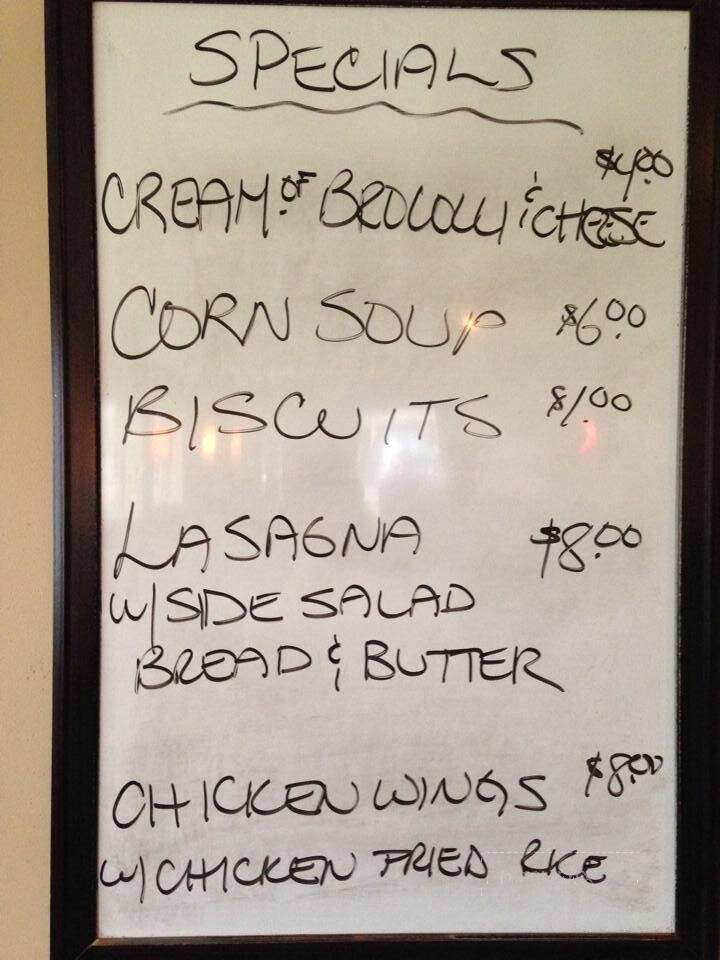 SPECIALS
$4.00
CREAM OF BROCOLLI & CHEESE
CORN SOUP $6.00
BISCUITS $1.00
LASAGNA $8.00
W/ SIDE SALAD
BREAD & BUTTER
CHICKEN WINGS $8.00
W/ CHICKEN FRIED RICE